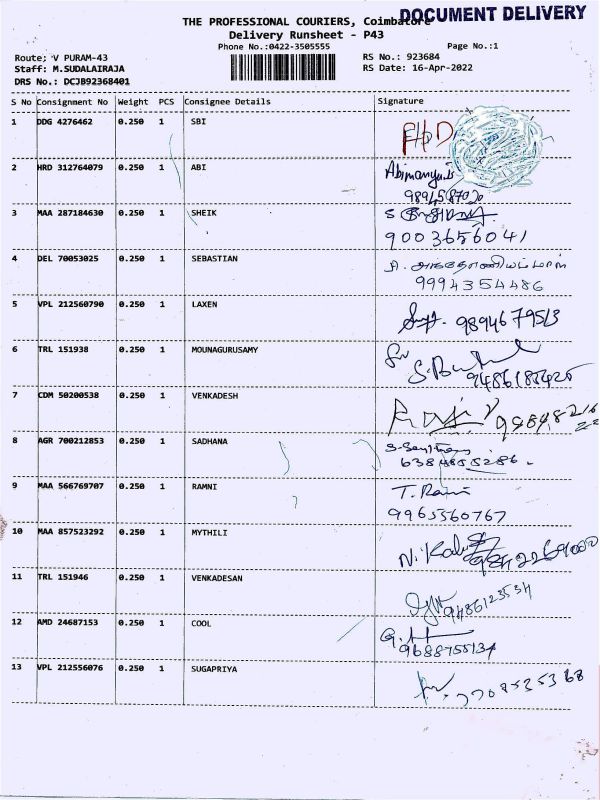 THE PROFESSIONAL COURIERS, Coimbatore
DOCUMENT DELIVERY
Delivery Runsheet - P43
Phone No.:0422-3505555
Page No.:1
Route; V PURAM-43
RS No.: 923684
Staff: M.SUDALAIRAJA
RS Date: 16-Apr-2022
DRS No.: DCJB92368401
S No Consignment No Weight PCS Consignee Details Signature
1 DDG 4276462 0.250 1 SBI
2 HRD 312764079 0.250 1 ABI
3 MAA 287184630 0.250 1 SHEIK
9003656041
4 DEL 70053025 0.250 1 SEBASTIAN
9994354486
5 VPL 212560790 0.250 1 LAXEN
9894679513
6 TRL 151938 0.250 1 MOUNAGURUSAMY
7 CDM 50200538 0.250 1 VENKADESH
8 AGR 700212853 0.250 1 SADHANA
9 MAA 566769707 0.250 1 RAMNI
T. Rami
9965560767
10 MAA 857523292 0.250 1 MYTHILI
11 TRL 151946 0.250 1 VENKADESAN
9486123534
12 AMD 24687153 0.250 1 COOL
13 VPL 212556076 0.250 1 SUGAPRIYA